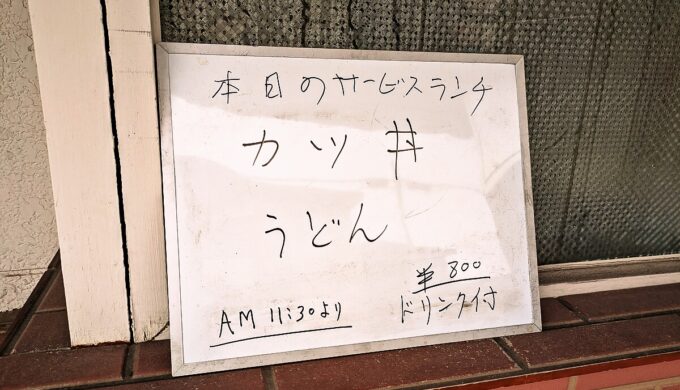 本日のサービスランチ
カツ丼
うどん
¥800
AM 11:30より
ドリンク付